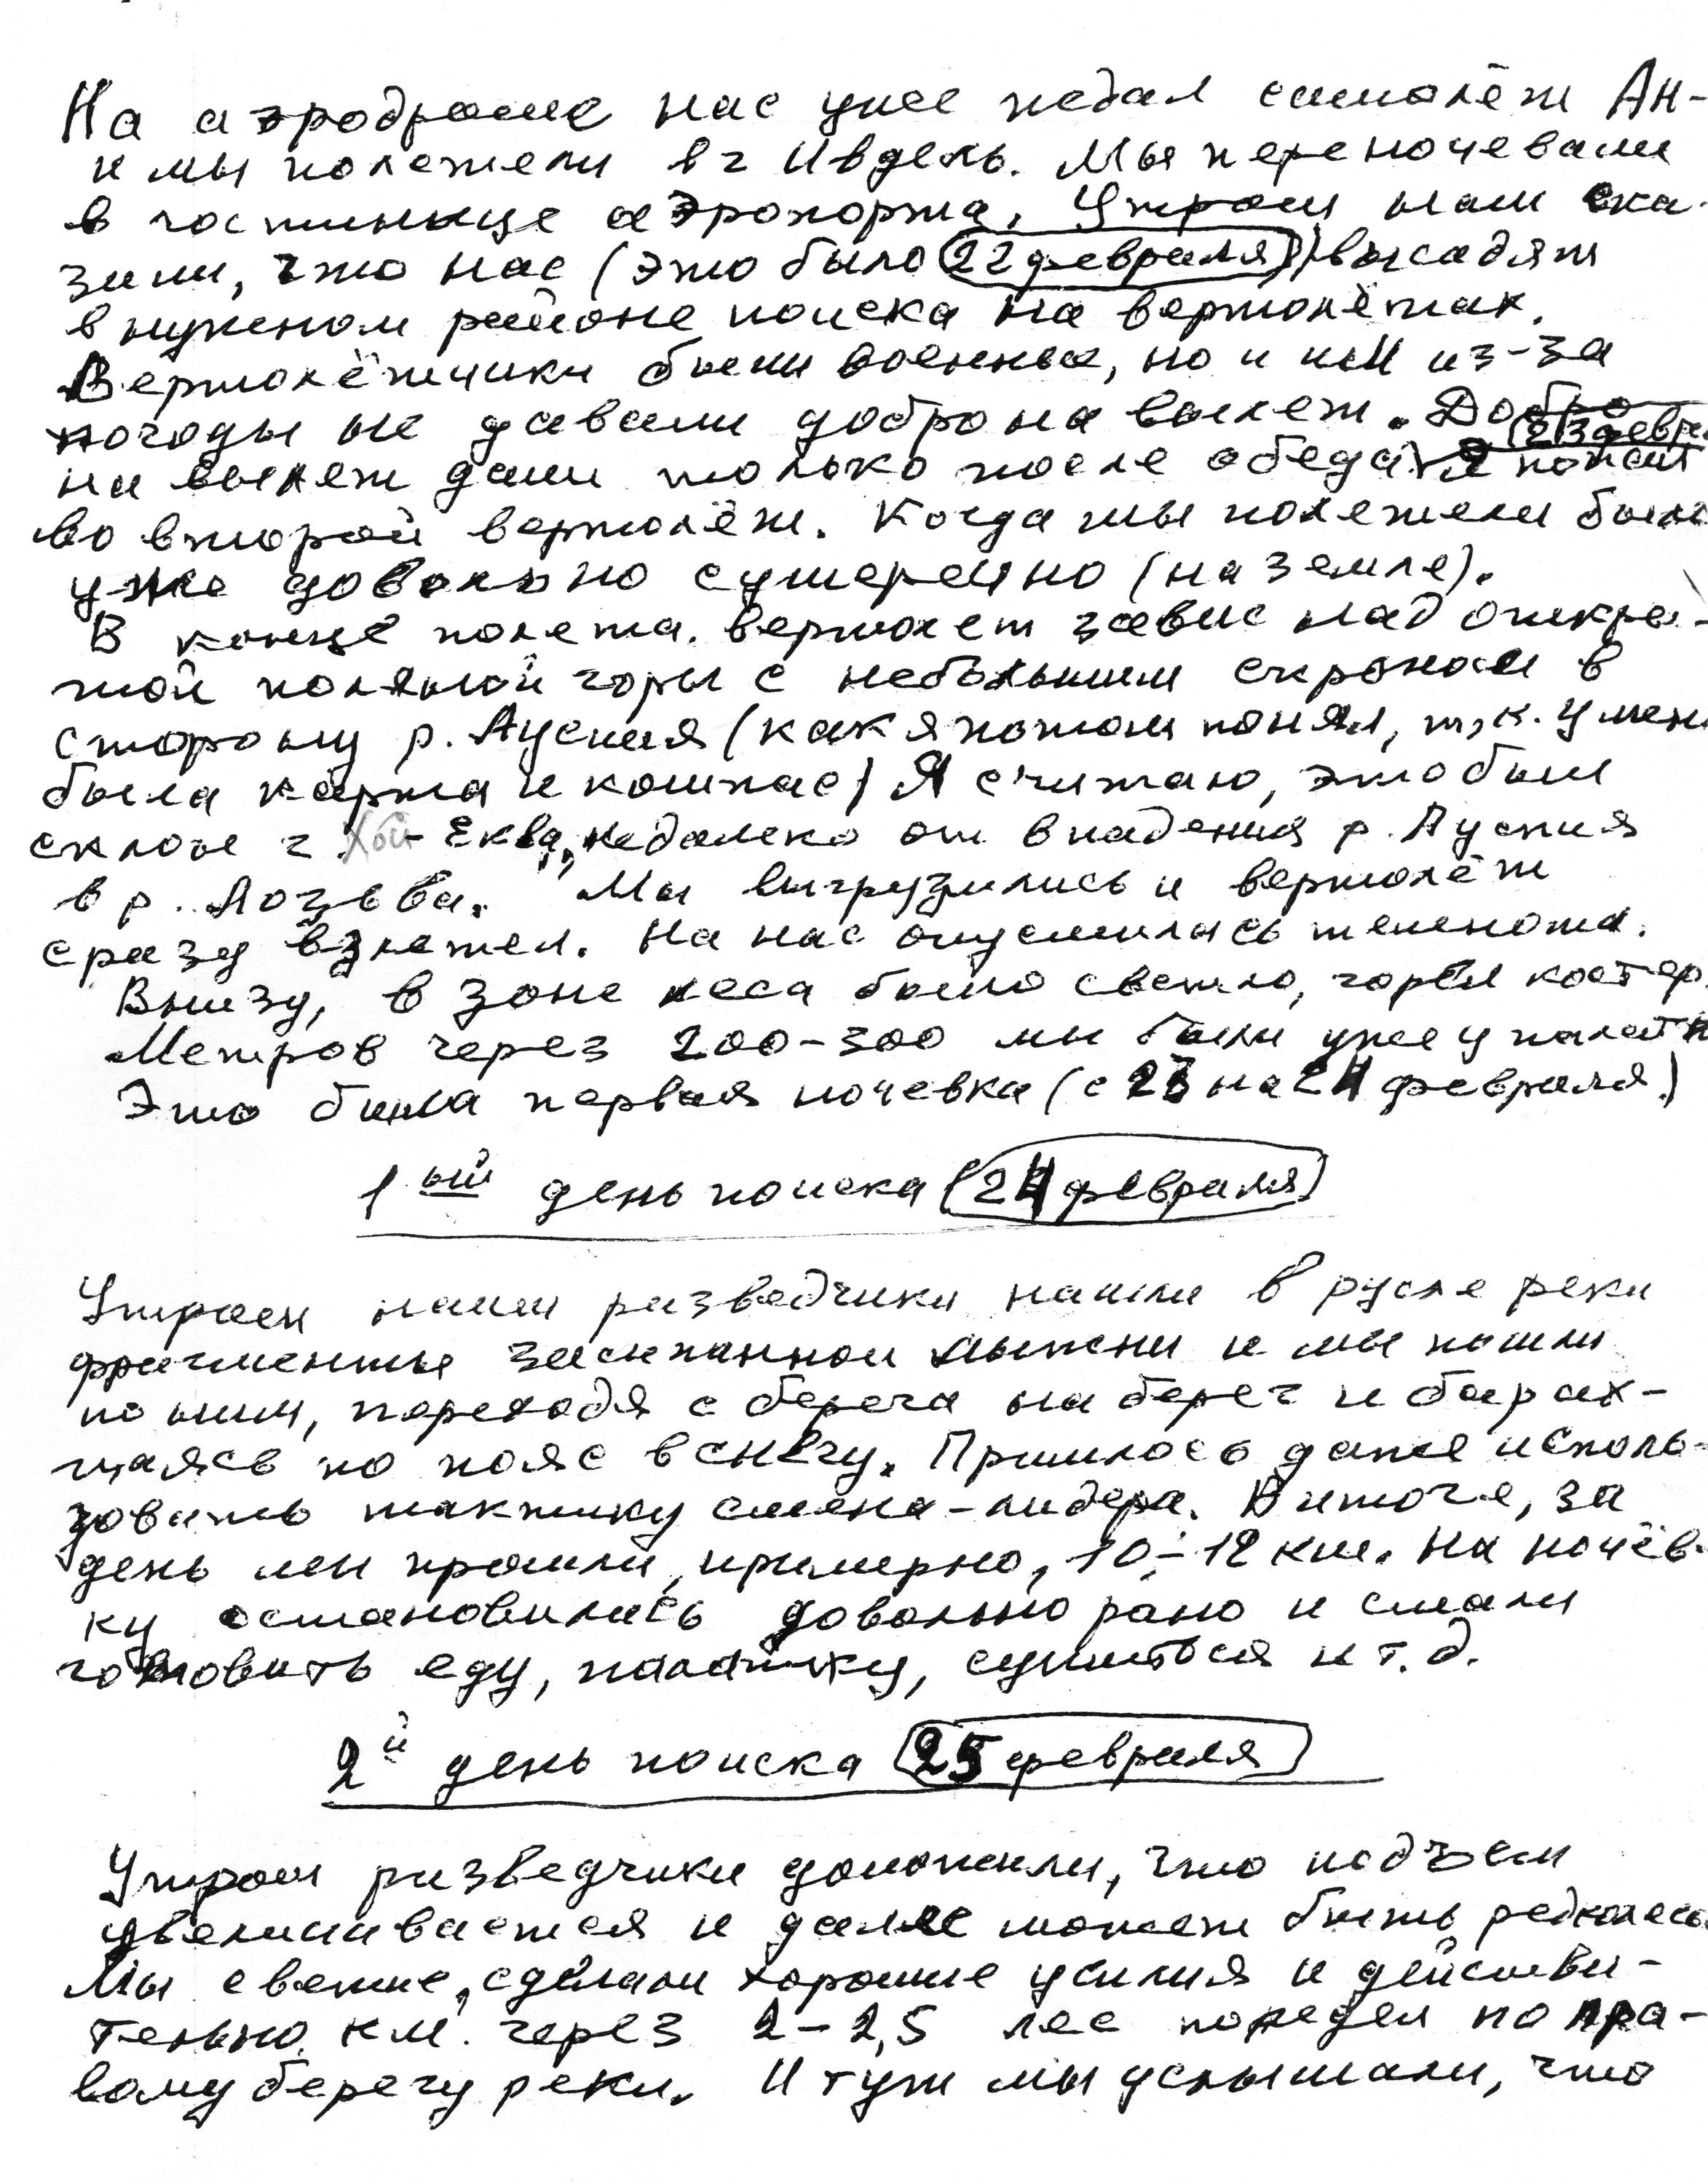 На аэродроме нас уже ждал самолёт Ан-
и мы полетели в г Ивдель. Мы переночевали
в гостинице аэропорта. Утром нам ска-
зали, что нас (это было 22 февраля) высадят
в нужном районе поиска на вертолётах.
Вертолётчики были военные, но и им из-за
погоды не давали добро на вылет. Добро
(23 февра
на вылет дали только после обеда. Я попал
во второй вертолёт. Когда мы полетели было
уже довольно сумеречно (на земле).
В конце полета. вертолет завис над откры-
той поляной горы с небольшим склоном в
сторону р. Ауспия (как я потом понял, т.к. у мен
была карта и компас) Я считаю, это был
склон г. Хой-Еква, недалеко от впадения р. Ауспия
в р. Лозьва. Мы выгрузились и вертолёт
сразу взлетел. На нас опустилась темнота.
Внизу, в зоне леса было светло, горел костер.
Метров через 200-300 мы были уже у палатк
Это была первая ночевка (с 23 на 24 февраля.)
1ый день поиска (24 февраля)
Утром наши разведчики нашли в русле реки
фрагменты засыпанной лыжни и мы пошли
по ним, переходя с берега на берег и барах-
таясь по пояс в снегу. Пришлось даже исполь-
зовать тактику смена-лидера. В итоге, за
день мы прошли, примерно, 10-12 км. На ночёв-
ку остановились довольно рано и стали
готовить еду, палатку, сушиться и т.д.
2й день поиска (25 февраля)
Утром разведчики доложили, что подъем
увеличивается и далее может быть редколесь
Мы свежие, сделали хорошие усилия и действи-
тельно. км. через 2-2,5 лес поредел по пра-
вому берегу реки. И тут мы услышали, что